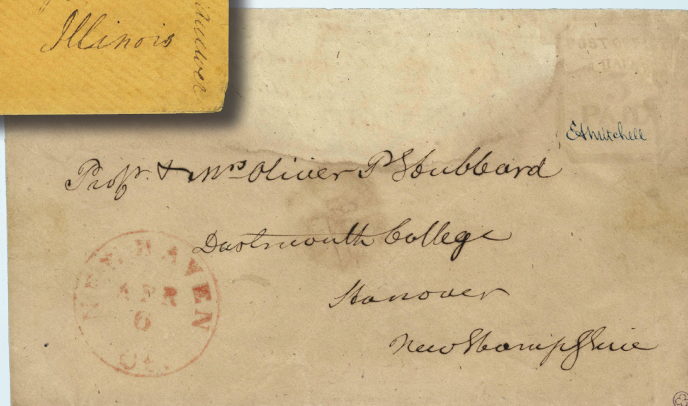 Illinois
E A Mitchell
Profr. & Mrs Oliver P Hubbard
Dartmouth College
Hanover
New Hampshire
NEW HAVEN
APR
6
Ct.